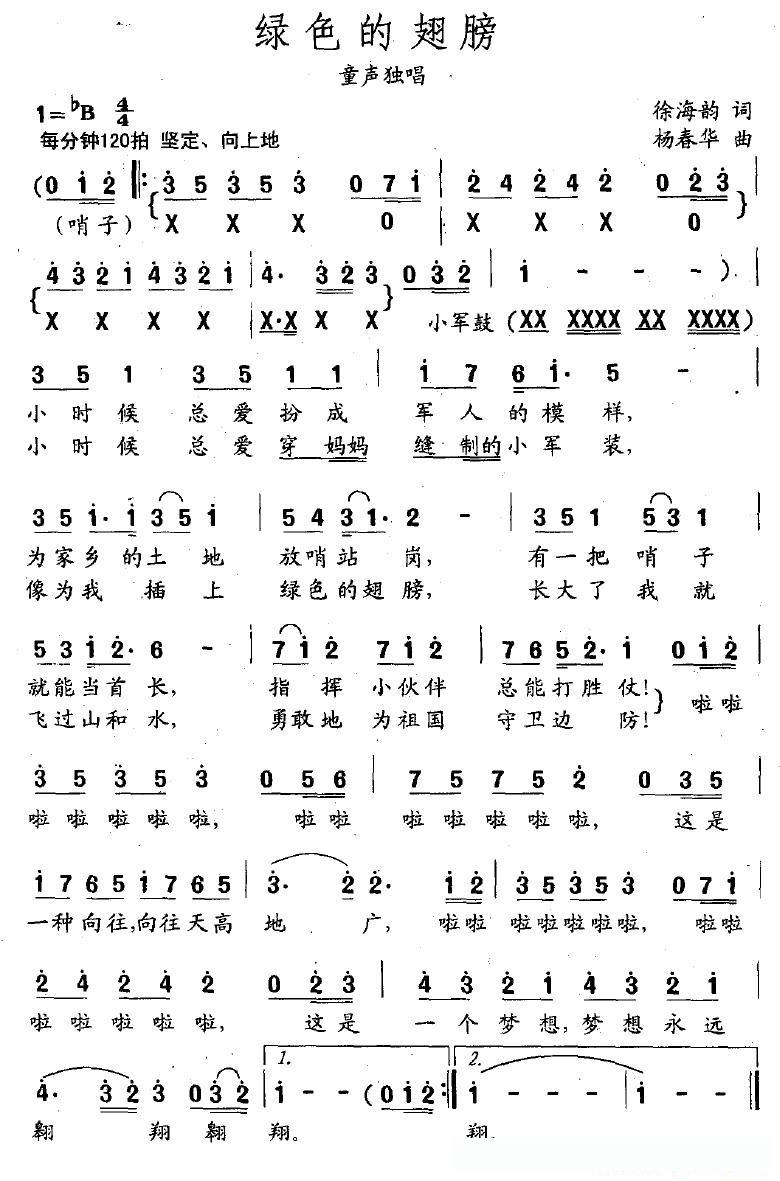 绿色的翅膀
童声独唱
1=♭B 4/4
徐海韵 词
每分钟120拍 坚定、向上地
杨春华 曲
(0 1̇ 2̇ 𝄆 3̇ 5̇ 3̇ 5̇ 3̇ 0 7 1̇ | 2̇ 4̇ 2̇ 4̇ 2̇ 0 2̇ 3̇ |
(哨子) { X X X 0 | X X X 0 }
4̇ 3̇ 2̇ 1̇ 4̇ 3̇ 2̇ 1̇ | 4̇· 3̇ 2̇ 3̇ 0 3̇ 2̇ | 1̇ - - - ) |
{ X X X X | X·X X X } 小军鼓 (XX XXXX XX XXXX)
3 5 1 3 5 1 1 | 1̇ 7 6 1̇· 5 - |
小时候 总爱扮成 军人的模样,
小时候 总爱穿妈妈 缝制的小军装,
3 5 1̇· 1̇ 3̇ 5 1̇ | 5 4 3 1· 2 - | 3 5 1 5 3 1 |
为家乡的土地 放哨站岗, 有一把哨子
像为我插上 绿色的翅膀, 长大了我就
5 3 1̇ 2̇· 6 - | 7 1̇ 2̇ 7 1̇ 2̇ | 7 6 5 2̇· 1̇ 0 1̇ 2̇ |
就能当首长, 指挥小伙伴 总能打胜仗! } 啦啦
飞过山和水, 勇敢地为祖国 守卫边防!
3̇ 5̇ 3̇ 5̇ 3̇ 0 5 6 | 7 5 7 5 2̇ 0 3 5 |
啦啦啦啦啦, 啦啦 啦啦啦啦啦, 这是
1̇ 7 6 5 1̇ 7 6 5 | 3̇· 2̇ 2̇· 1̇ 2̇ | 3̇ 5̇ 3̇ 5̇ 3̇ 0 7 1̇ |
一种向往,向往天高 地广, 啦啦 啦啦啦啦啦, 啦啦
2̇ 4̇ 2̇ 4̇ 2̇ 0 2̇ 3̇ | 4̇ 3̇ 2̇ 1̇ 4̇ 3̇ 2̇ 1̇ |
啦啦啦啦啦, 这是 一个梦想,梦想永远
1. 2.
4̇· 3̇ 2̇ 3̇ 0 3̇ 2̇ | 1̇ - - (0 1̇ 2̇ 𝄇 1̇ - - - | 1̇ - - - ‖
翱 翔翱 翔。 翔。